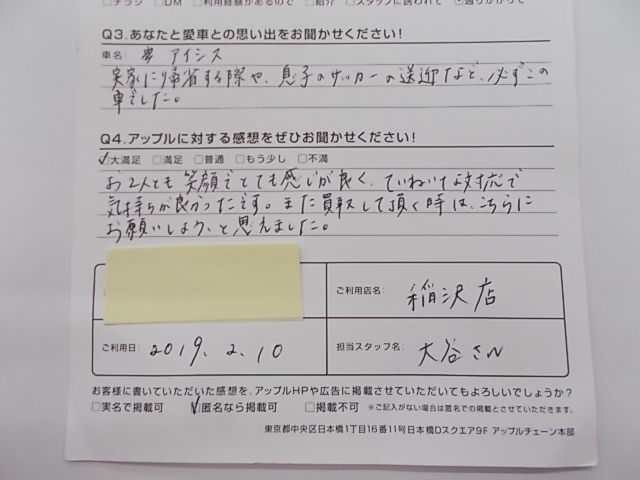 □チラシ □DM □利用経験があるので □紹介 □スタッフに誘われて ☑通りがかりで
Q3.あなたと愛車との思い出をお聞かせください!
車名: アイシス
実家に帰省する際や、息子のサッカーの送迎など、必ずこの
車でした。
Q4.アップルに対する感想をぜひお聞かせください!
☑大満足 □満足 □普通 □もう少し □不満
お2人とも笑顔でとても感じが良く、ていねいな対応で
気持ちが良かったです。また買取して頂く時は、こちらに
お願いしよう、と思えました。
ご利用店名: 稲沢店
ご利用日: 2019.2.10
担当スタッフ名: 大谷さん
お客様に書いていただいた感想を、アップルHPや広告に掲載させていただいてもよろしいでしょうか?
□実名で掲載可 ☑匿名なら掲載可 □掲載不可 ※ご記入がない場合は匿名での掲載とさせていただきます。
東京都中央区日本橋1丁目16番11号日本橋Dスクエア9F アップルチェーン本部